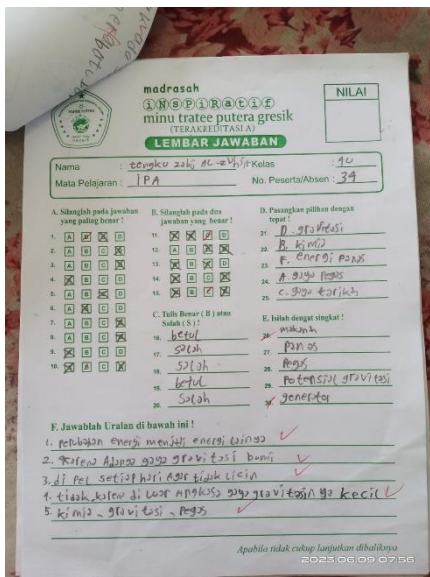 madrasah
inspiratif
minu tratee putera gresik
(TERAKREDITASI A)
LEMBAR JAWABAN
NILAI
Nama : tengku zaki AL-
Kelas :
Mata Pelajaran : IPA
No. Peserta/Absen : 34
A. Silanglah pada jawaban yang paling benar !
1. A B C D
2. A B C
3. A B C
4. B C D
5. A B D
6. A B C
7. A C D
8. A B C
9. B C D
10. C D
B. Silanglah pada dua jawaban yang benar !
11.
12. A B
13.
14.
15. B
C. Tulis Benar ( B ) atau Salah ( S ) !
16. betul
17. salah
18. salah
19. betul
20. Salah
D. Pasangkan pilihan dengan tepat !
21. D. gravitasi
22. B. kimia
23. F. energi panas
24. A. gaya pegas
25. C. gaya tarikh
E. Isilah dengat singkat !
26. makanan
27. Panas
28. Pegas
29. Potensial gravitasi
30. generator
F. Jawablah Uraian di bawah ini !
1. perubahan energi menjadi energi lainya
2. karena Adanya gaya gravitasi bumi
3. di pel setiap hari Agar tidak licin
4. tidak, karen di luar Angkasa gaya gravitasinya kecil
5. kimia, gravitasi, Pegas
Apabila tidak cukup lanjutkan dibaliknya
2023.06.09 07:56